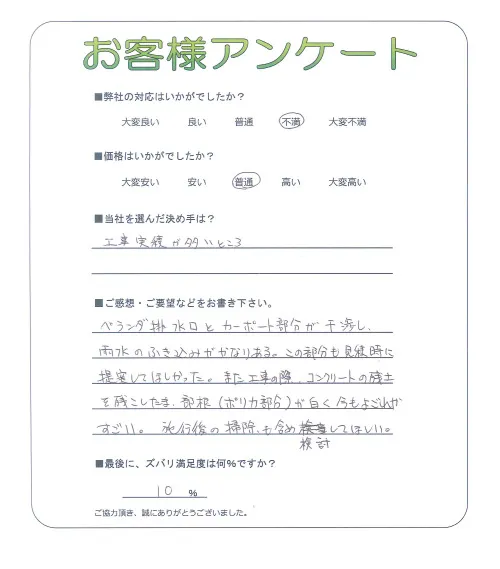 お客様アンケート
■弊社の対応はいかがでしたか？
大変良い 良い 普通 不満 大変不満
■価格はいかがでしたか？
大変安い 安い 普通 高い 大変高い
■当社を選んだ決め手は？
工事実績が多いところ
■ご感想・ご要望などをお書き下さい。
ベランダ排水口とカーポート部分が干渉し、
雨水のふき込みがかなりある。この部分も見積時に
提案してほしかった。また工事の際、コンクリートの残土
を残したま、部根（ポリカ部分）が白く今もよごれが
すごい。施行後の掃除も含めしてほしい。
検討
■最後に、ズバリ満足度は何％ですか？
10 ％
ご協力頂き、誠にありがとうございました。